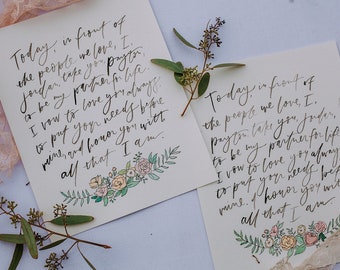 Today, in front of
the people we love, I
Jordan, take you Payton
to be my partner for life.
I vow to love you always,
to put your needs before
mine, and honor you with
all that I am.
Today in front of
the people we love, I,
Payton take you Jordan,
to be my partner for life
I vow to love you always
to put your needs before
mine, & honor you with
all that I am.